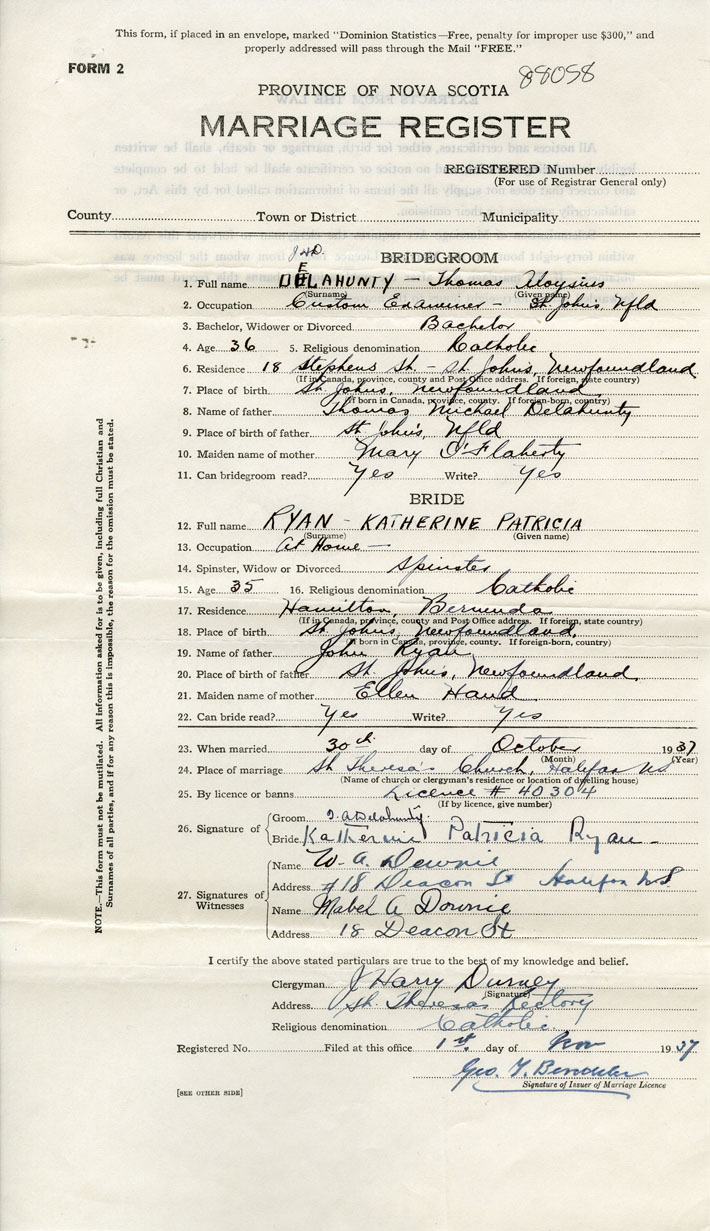 This form, if placed in an envelope, marked "Dominion Statistics—Free, penalty for improper use $300," and
properly addressed will pass through the Mail "FREE."
FORM 2
88058
PROVINCE OF NOVA SCOTIA
MARRIAGE REGISTER
REGISTERED Number
(For use of Registrar General only)
County Town or District Municipality
BRIDEGROOM
1. Full name DELAHUNTY — Thomas Aloysius
(Surname) (Given name)
2. Occupation Custom Examiner — St. John's, Nfld
3. Bachelor, Widower or Divorced Bachelor
4. Age 36 5. Religious denomination Catholic
6. Residence 18 Stephens St. — St. John's, Newfoundland
(If in Canada, province, county and Post Office address. If foreign, state country)
7. Place of birth St. John's, Newfoundland
(If born in Canada, province, county. If foreign-born, country)
8. Name of father Thomas Michael Delahunty
9. Place of birth of father St. John's, Nfld
10. Maiden name of mother Mary O'Flaherty
11. Can bridegroom read? Yes Write? Yes
BRIDE
12. Full name RYAN - KATHERINE PATRICIA
(Surname) (Given name)
13. Occupation At Home —
14. Spinster, Widow or Divorced Spinster
15. Age 35 16. Religious denomination Catholic
17. Residence Hamilton, Bermuda
(If in Canada, province, county and Post Office address. If foreign, state country)
18. Place of birth St. John's, Newfoundland,
(If born in Canada, province, county. If foreign-born, country)
19. Name of father John Ryan
20. Place of birth of father St. John's, Newfoundland
21. Maiden name of mother Ellen Hand
22. Can bride read? Yes Write? Yes
23. When married 30th day of October 1937
(Month) (Year)
24. Place of marriage St Theresa's Church, Halifax NS
(Name of church or clergyman's residence or location of dwelling house)
25. By licence or banns Licence # 40304
(If by licence, give number)
26. Signature of Groom T. A. Delahunty
Bride Katherine Patricia Ryan -
27. Signatures of Witnesses Name W. A. Downie
Address #18 Deacon St Halifax N.S.
Name Mabel A Downie
Address 18 Deacon St
I certify the above stated particulars are true to the best of my knowledge and belief.
Clergyman J Harry Durney
(Signature)
Address St. Theresas Rectory
Religious denomination Catholic
Registered No. Filed at this office 1st. day of Nov 1937
Geo. T.
Signature of Issuer of Marriage Licence
[SEE OTHER SIDE]
NOTE.—This form must not be mutilated. All information asked for is to be given, including full Christian and
Surnames of all parties, and if for any reason this is impossible, the reason for the omission must be stated.